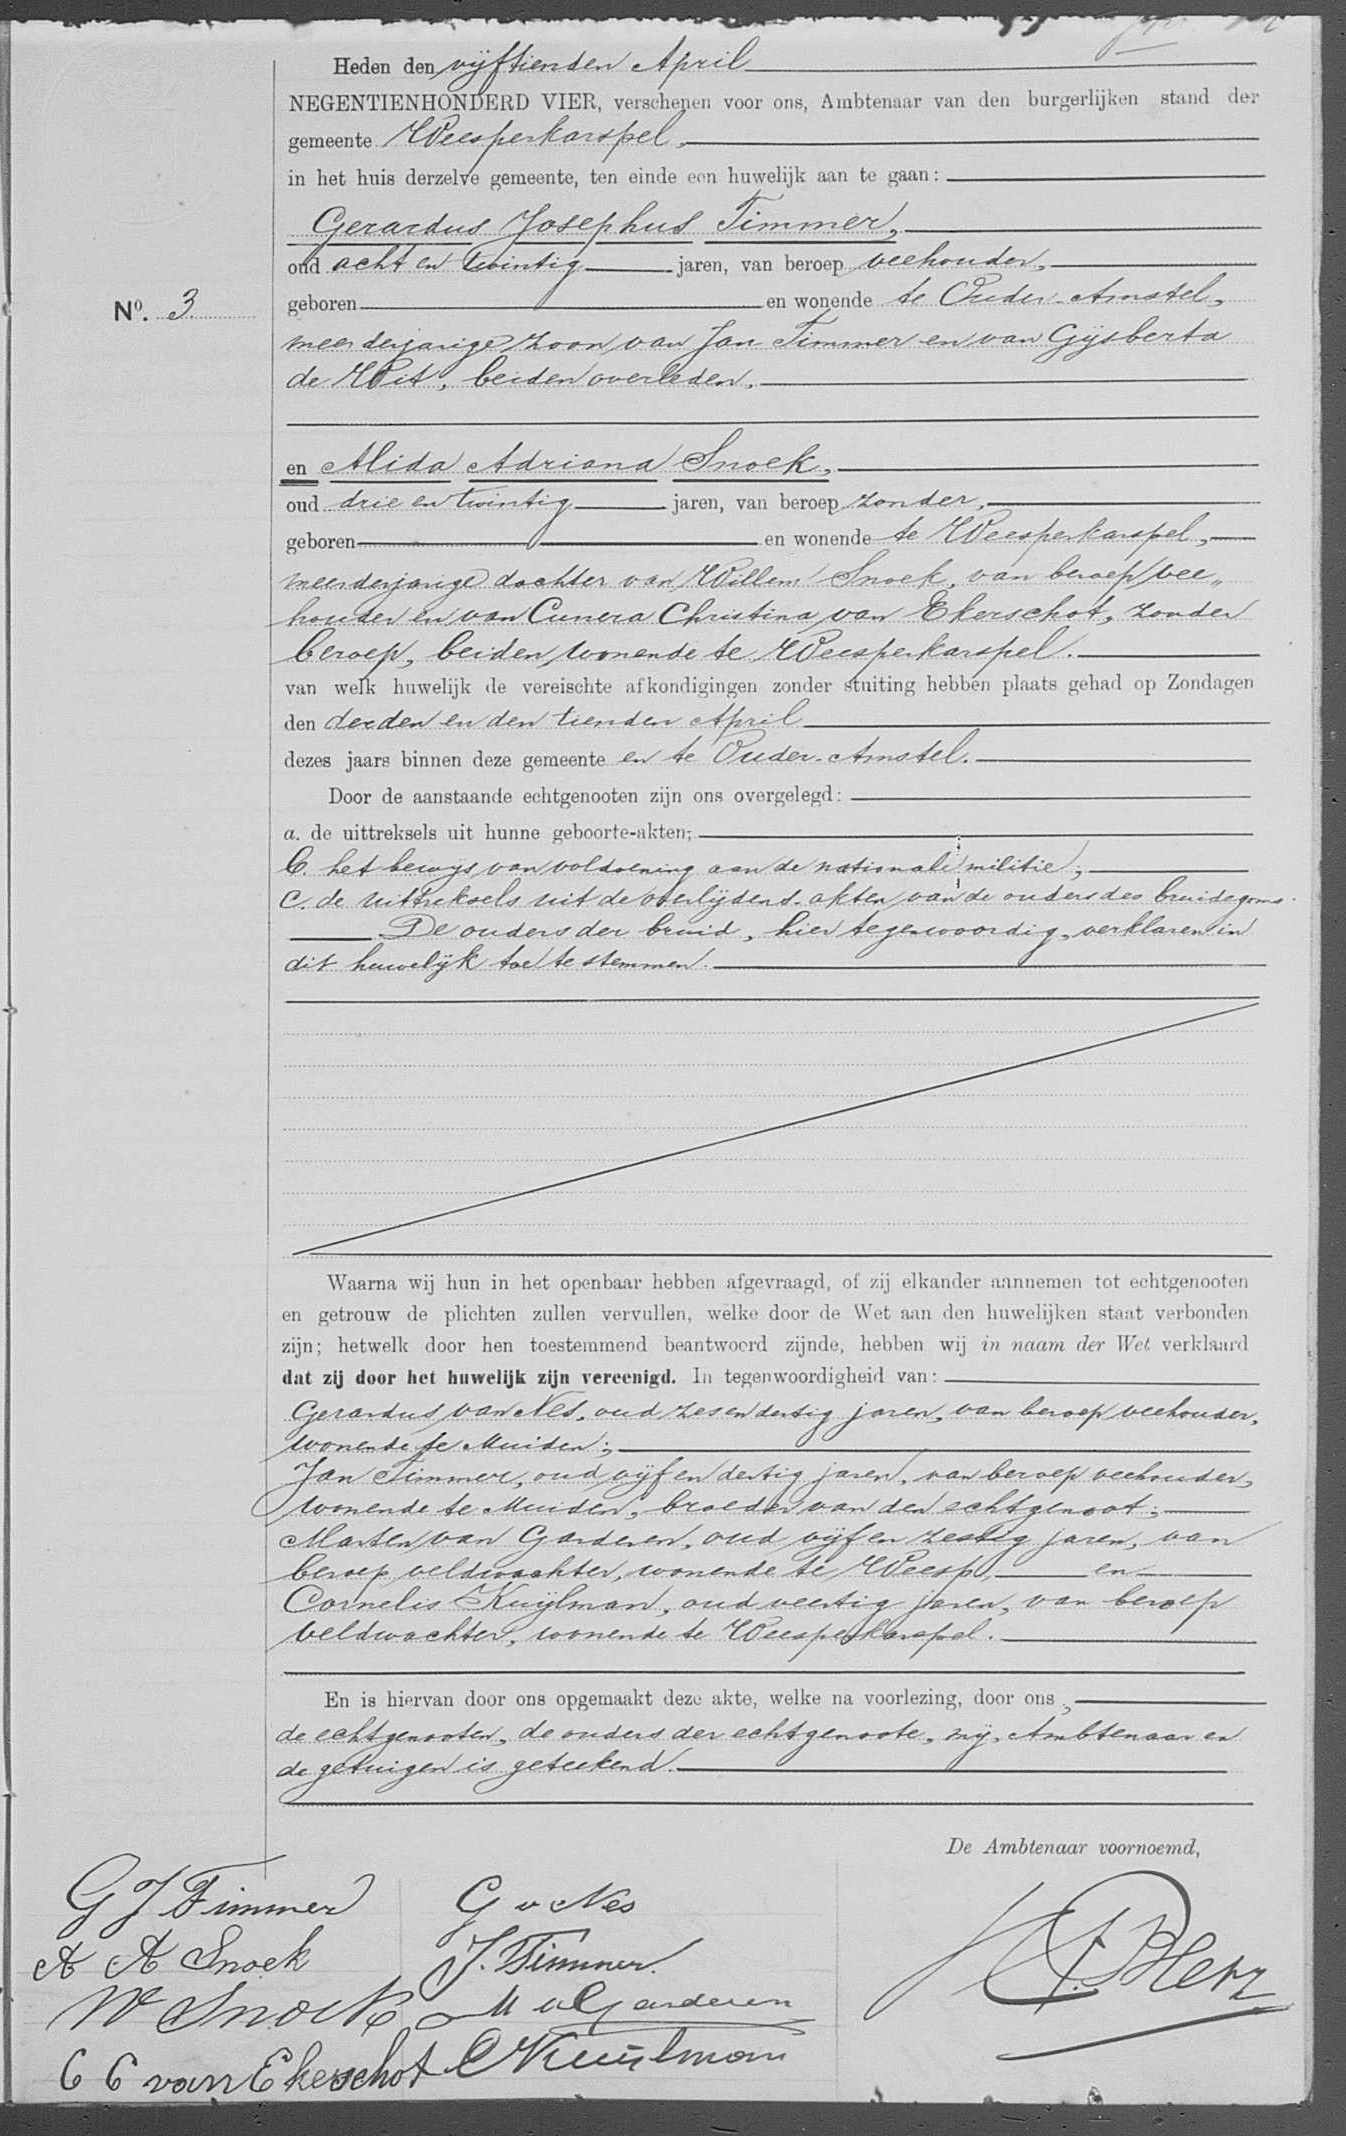 Heden den vijftienden April
NEGENTIENHONDERD VIER, verschenen voor ons, Ambtenaar van den burgerlijken stand der
gemeente Weesperkarspel,
in het huis derzelve gemeente, ten einde een huwelijk aan te gaan:
Gerardus Josephus Timmer,
oud acht en twintig jaren, van beroep veehouder,
No. 3
geboren en wonende te Ouder-Amstel,
meerderjarige zoon van Jan Timmer en van Gijsberta
de Wit, beiden overleden,
en Alida Adriana Snoek,
oud drie en twintig jaren, van beroep zonder,
geboren en wonende te Weesperkarspel,
meerderjarige dochter van Willem Snoek, van beroep vee„
houder en van Cunera Christina van Ekerschot, zonder
beroep, beiden wonende te Weesperkarspel.
van welk huwelijk de vereischte afkondigingen zonder stuiting hebben plaats gehad op Zondagen
den derden en den tienden April
dezes jaars binnen deze gemeente en te Ouder-Amstel.
Door de aanstaande echtgenooten zijn ons overgelegd:
a. de uittreksels uit hunne geboorte-akten;
b. het bewijs van voldoening aan de nationale militie;
c. de uittreksels uit de overlijdens-akten van de ouders des bruidegoms.
De ouders der bruid, hier tegenwoordig, verklaren in
dit huwelijk toe te stemmen.
Waarna wij hun in het openbaar hebben afgevraagd, of zij elkander aannemen tot echtgenooten
en getrouw de plichten zullen vervullen, welke door de Wet aan den huwelijken staat verbonden
zijn; hetwelk door hen toestemmend beantwoord zijnde, hebben wij in naam der Wet verklaard
dat zij door het huwelijk zijn vereenigd. In tegenwoordigheid van:
Gerardus van Nes, oud zes en dertig jaren, van beroep veehouder,
wonende te Muiden;
Jan Timmer, oud vijf en dertig jaren, van beroep veehouder,
wonende te Muiden, broeder van den echtgenoot;
Marten van Garderen, oud vijf en zestig jaren, van
beroep veldwachter, wonende te Weesp, en
Cornelis Kuijlman, oud veertig jaren, van beroep
veldwachter, wonende te Weesperkarspel.
En is hiervan door ons opgemaakt deze akte, welke na voorlezing, door ons,
de echtgenooten, de ouders der echtgenoote, mij, Ambtenaar en
de getuigen is geteekend.
De Ambtenaar voornoemd,
G J Timmer
A A Snoek
W Snoek
C C van Ekerschot
G v Nes
J. Timmer.
M v Garderen
C Kuijlman